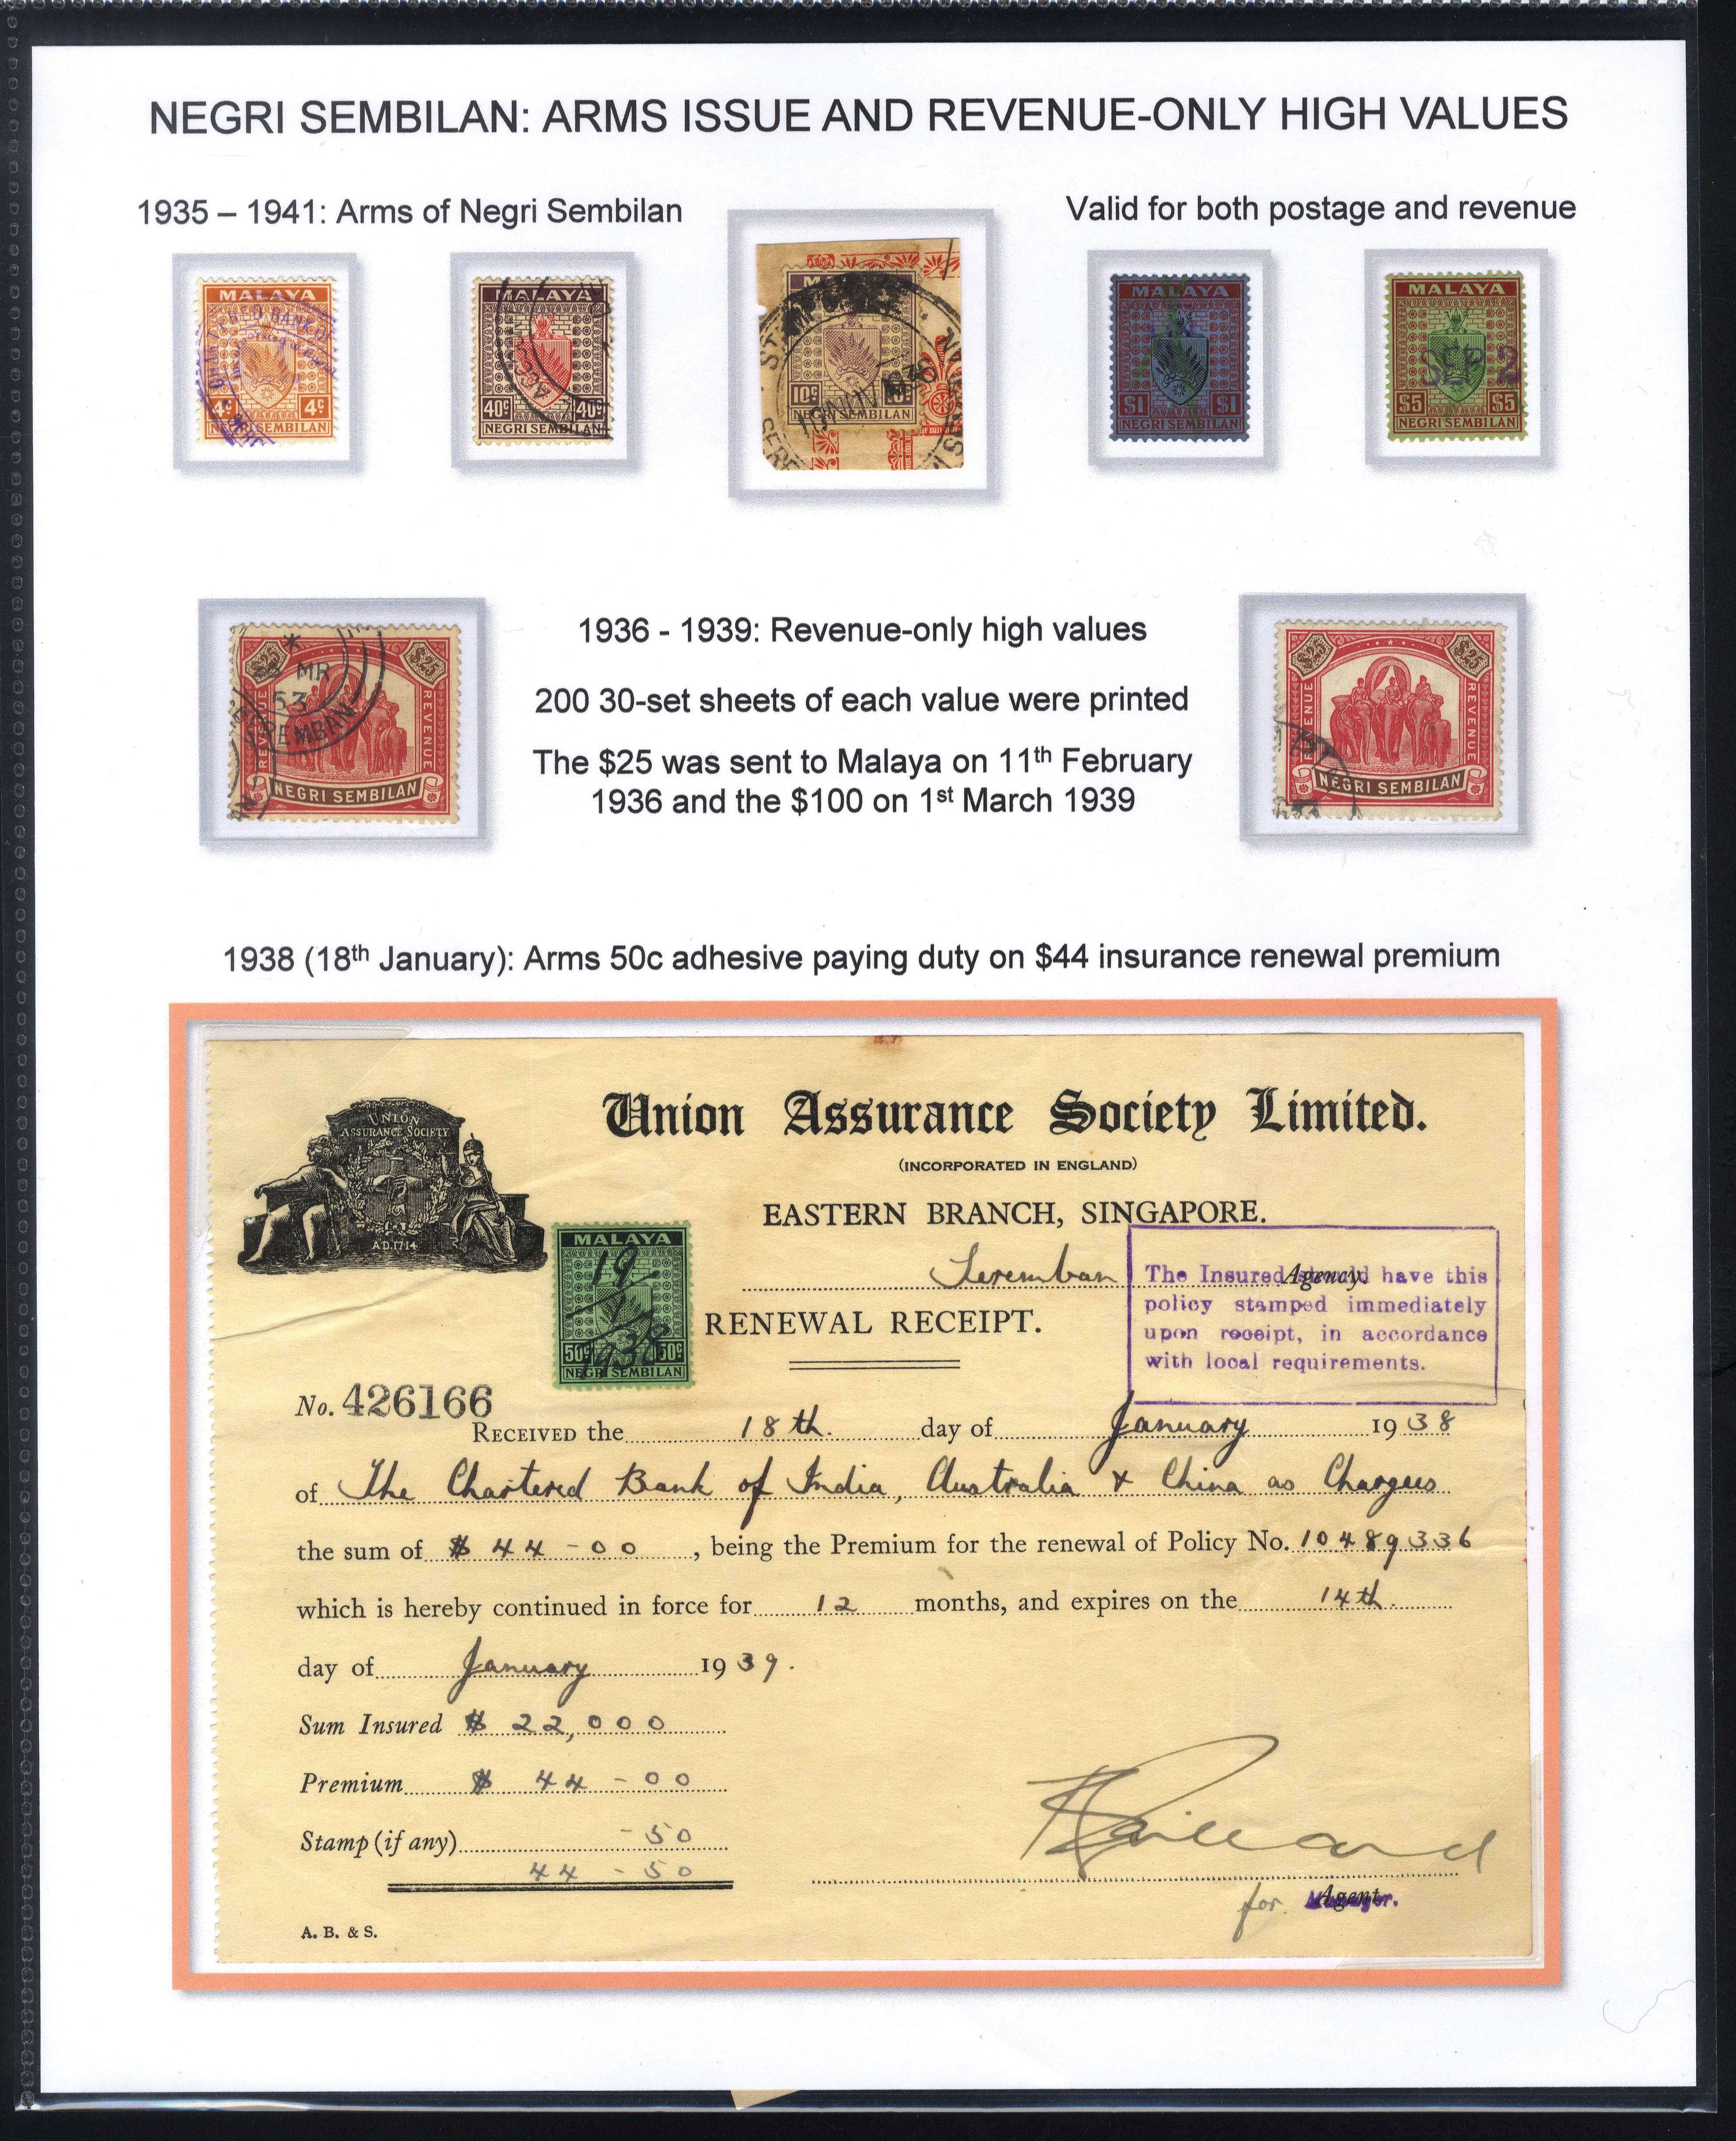 NEGRI SEMBILAN: ARMS ISSUE AND REVENUE-ONLY HIGH VALUES
1935 – 1941: Arms of Negri Sembilan
Valid for both postage and revenue
MALAYA
4c 4c
NEGRI SEMBILAN
MALAYA
40c 40c
NEGRI SEMBILAN
10c
NEGRI SEMBILAN
1936
MALAYA
$1 $1
NEGRI SEMBILAN
MALAYA
SEP 2
$5 $5
NEGRI SEMBILAN
$25
MR
53
SEREMBAN
REVENUE REVENUE
NEGRI SEMBILAN
1936 - 1939: Revenue-only high values
200 30-set sheets of each value were printed
The $25 was sent to Malaya on 11th February
1936 and the $100 on 1st March 1939
$25 $25
REVENUE REVENUE
NEGRI SEMBILAN
1938 (18th January): Arms 50c adhesive paying duty on $44 insurance renewal premium
UNION
ASSURANCE SOCIETY
A.D.1714
Union Assurance Society Limited.
(INCORPORATED IN ENGLAND)
EASTERN BRANCH, SINGAPORE.
Seremban Agency.
The Insured should have this
policy stamped immediately
upon receipt, in accordance
with local requirements.
MALAYA
19
1
1938
50c 50c
NEGRI SEMBILAN
RENEWAL RECEIPT.
No. 426166
RECEIVED the 18th. day of January 1938
of The Chartered Bank of India, Australia & China as Chargees
the sum of $ 44-00, being the Premium for the renewal of Policy No. 10489336
which is hereby continued in force for 12 months, and expires on the 14th.
day of January 1939.
Sum Insured $ 22,000
Premium $ 44-00
Stamp (if any) -50
44-50
for Agent.
A. B. & S.